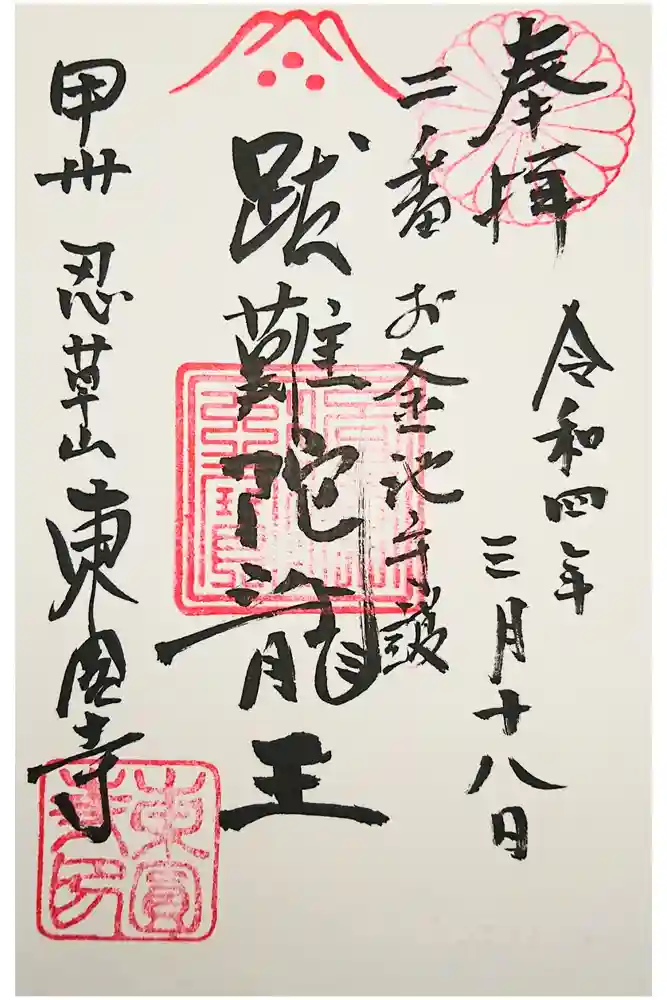 奉拝
令和四年
三月十八日
二番
お釜池守護
跋難陀龍王
甲州 忍草山 東圓寺